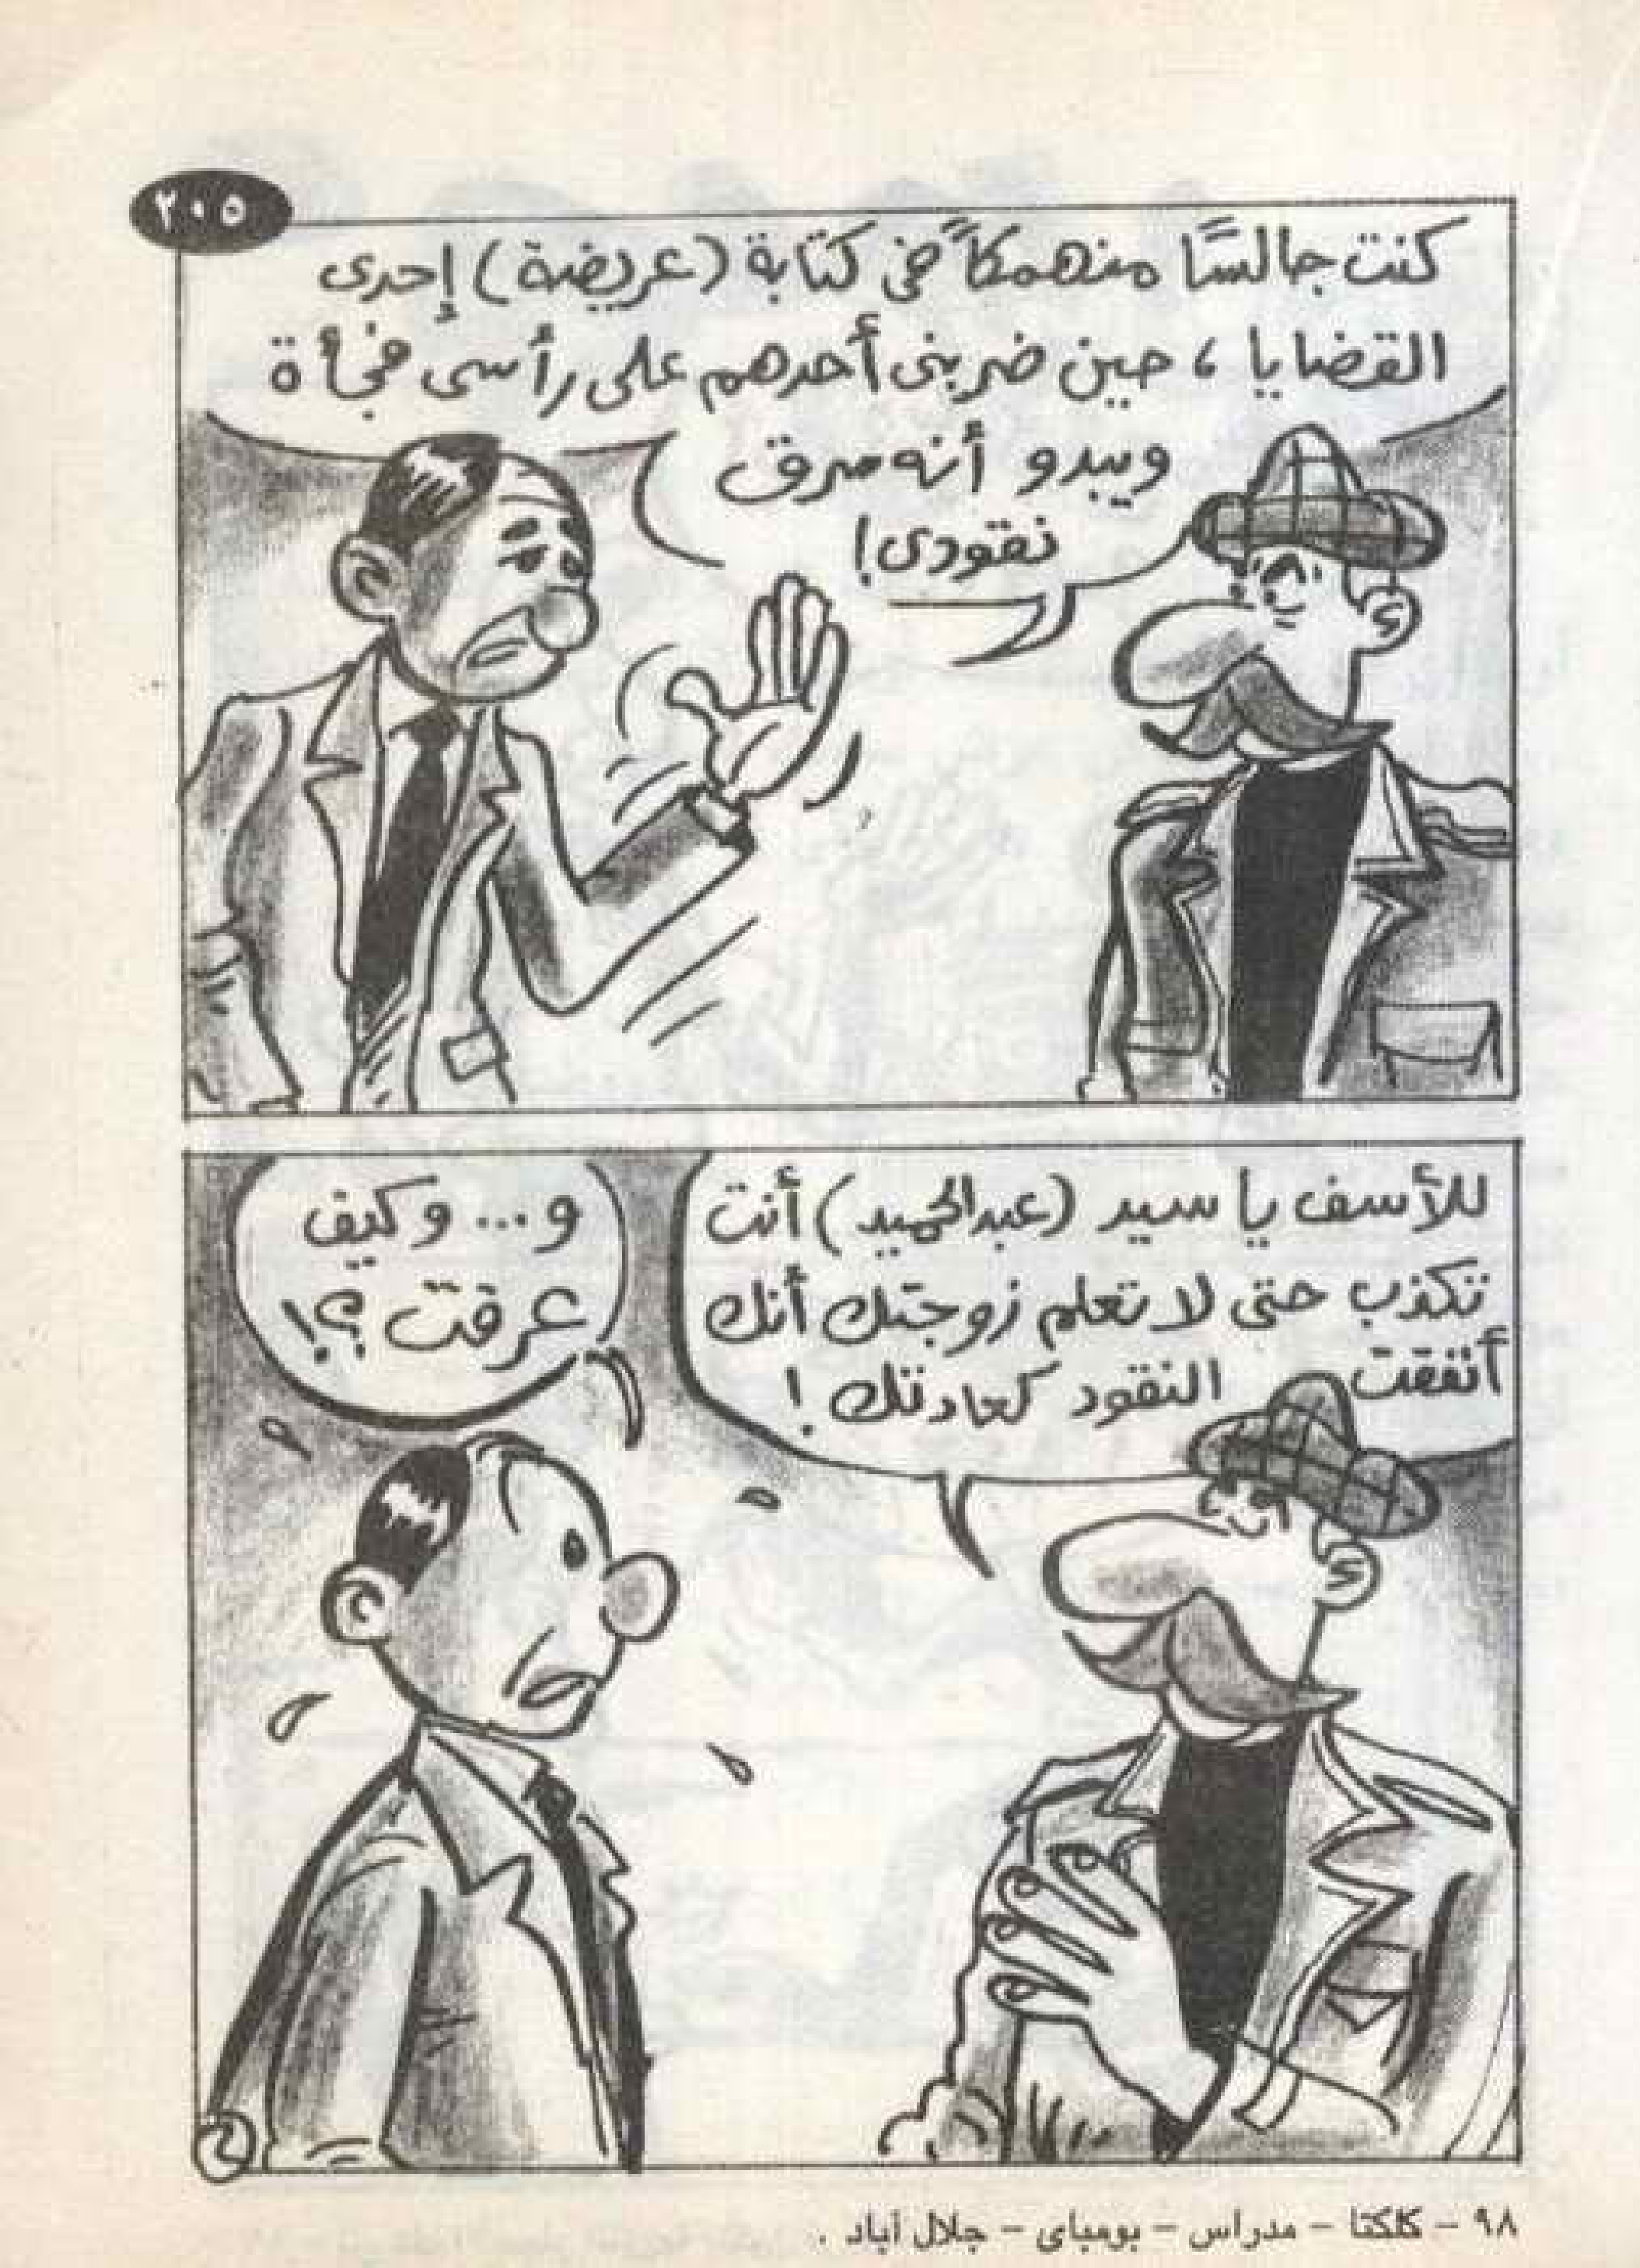 ٢٠٥
كنت جالسًا منهمكاً فى كتابة (عريضة) إحدى
القضايا، حين ضربنى أحدهم على رأسى فجأة
ويبدو أنه سرق
نقودى!
للأسف يا سيد (عبدالحميد) أنت
تكذب حتى لا تعلم زوجتك أنك
أنفقت النقود كعادتك!
و... وكيف
عرفت؟!
٤
٩٨ - كلكتا - مدراس - بومباى - جلال أباد .